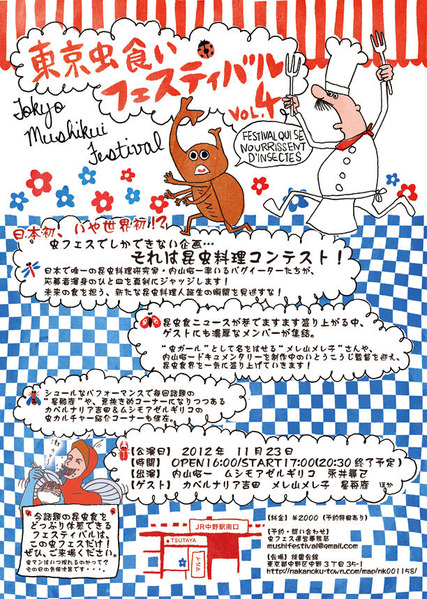 東京虫食い
フェスティバル
VOL.4
Tokyo
Mushikui
Festival
FESTIVAL QUI SE
NOURRISSENT
D'INSECTES
日本初、いや世界初!?
虫フェスでしかできない企画…
それは昆虫料理コンテスト!
日本で唯一の昆虫料理研究家・内山昭一率いるバグイーターたちが、
応募者渾身のひと皿を真剣にジャッジします!
未来の食を担う、新たな昆虫料理人誕生の瞬間を見逃すな!
昆虫食ニュースが巷でますます盛り上がる中、
ゲストにも濃厚なメンバーが集結。
"虫ガール"として名をはせる"メレ山メレ子"さんや、
内山昭一ドキュメンタリーを制作中のいとうこうじ監督を迎え、
昆虫食界を一気に盛り上げていきます!
シュールなパフォーマンスで毎回話題の
"星苑唐"や、息抜きめコーナーになりつつある
カベルナリア吉田&ムシモアゼルギリコの
虫カルチャー紹介コーナーも健在。
【公演日】 2012年 11月23日
【時間】 OPEN16:00/START17:00(20:30 終了予定)
【出演】 内山昭一 ムシモアゼルギリコ 永井尋己
【ゲスト】 カベルナリア吉田 メレ山メレ子 星苑唐 ほか
今話題の昆虫食を
どっぷり体感できる
フェスティバルは、
この虫フェスだけ!
ぜひ、ご来場ください。
虫マンはいつ現れるのかって?
その日の気分次第です・・・。
JR中野駅南口
TSUTAYA
【料金】 ¥2000 (予約特典あり)
【予約・問い合わせ】
虫フェス運営事務局
mushifestival@gmail.com
【会場】 桃園会館
東京都中野区中野3丁目35-1
http://nakanoku-town.com/map/nk001158/